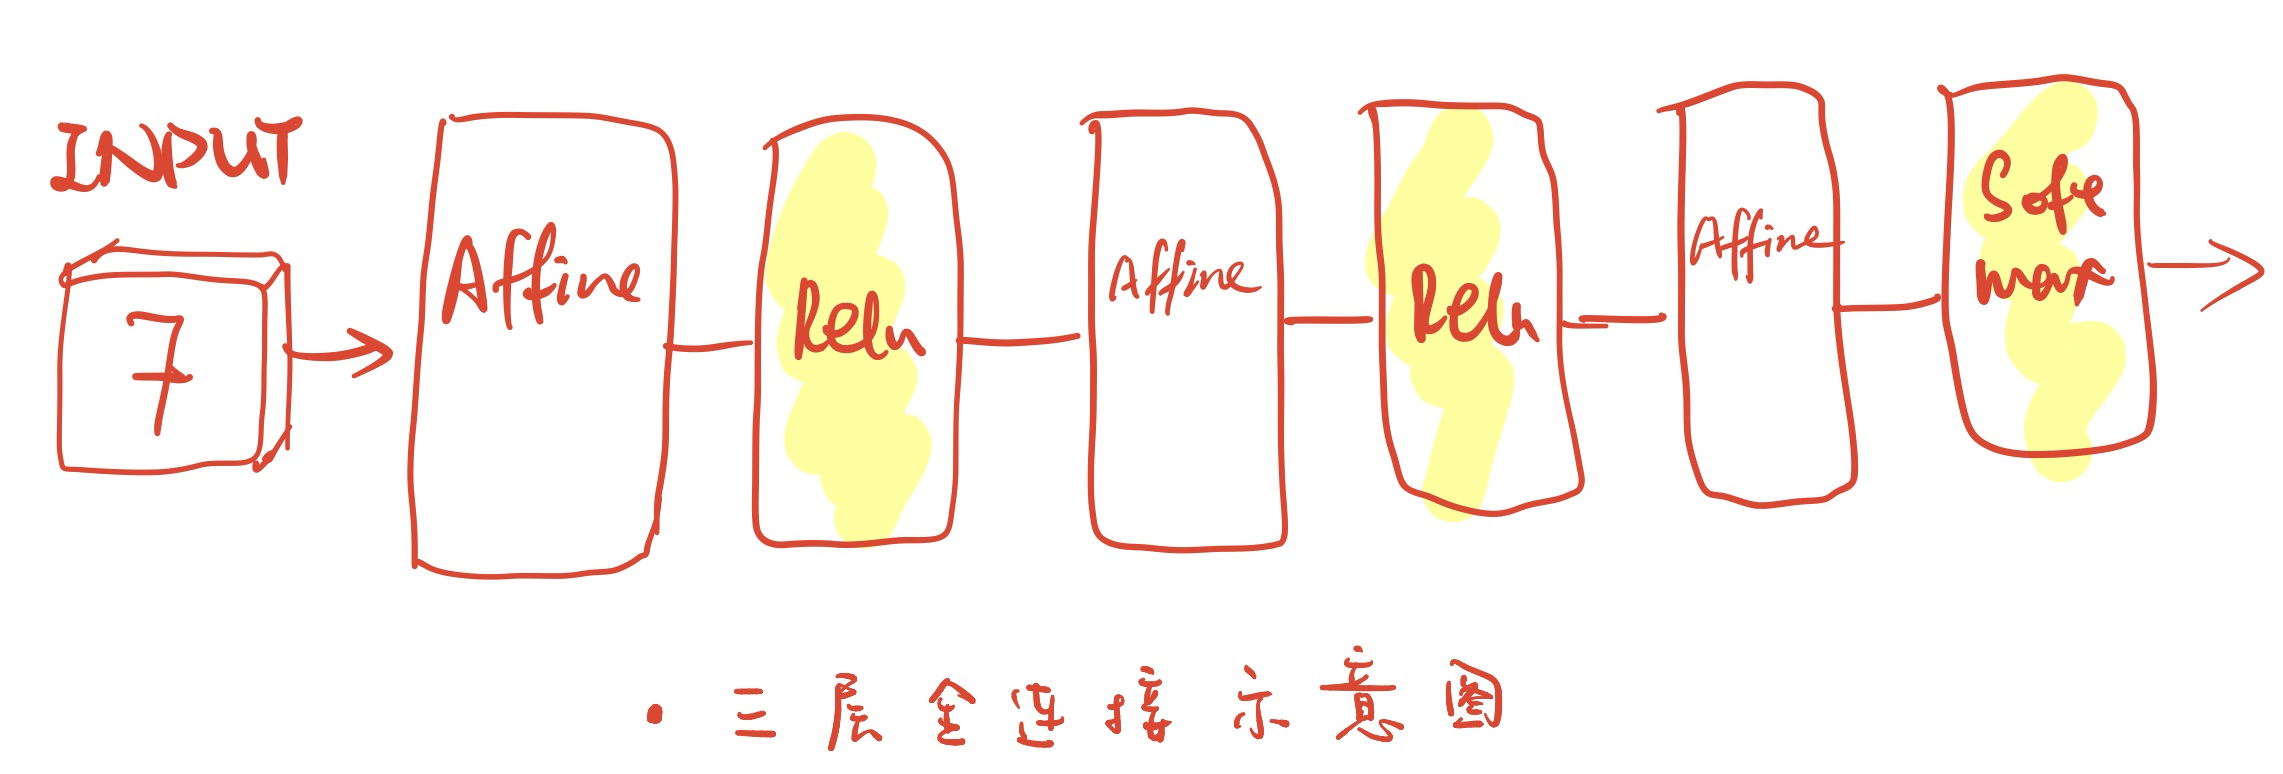 INPUT
7
Affine
Relu
Affine
Relu
Affine
Soft
max
• 三层全连接示意图